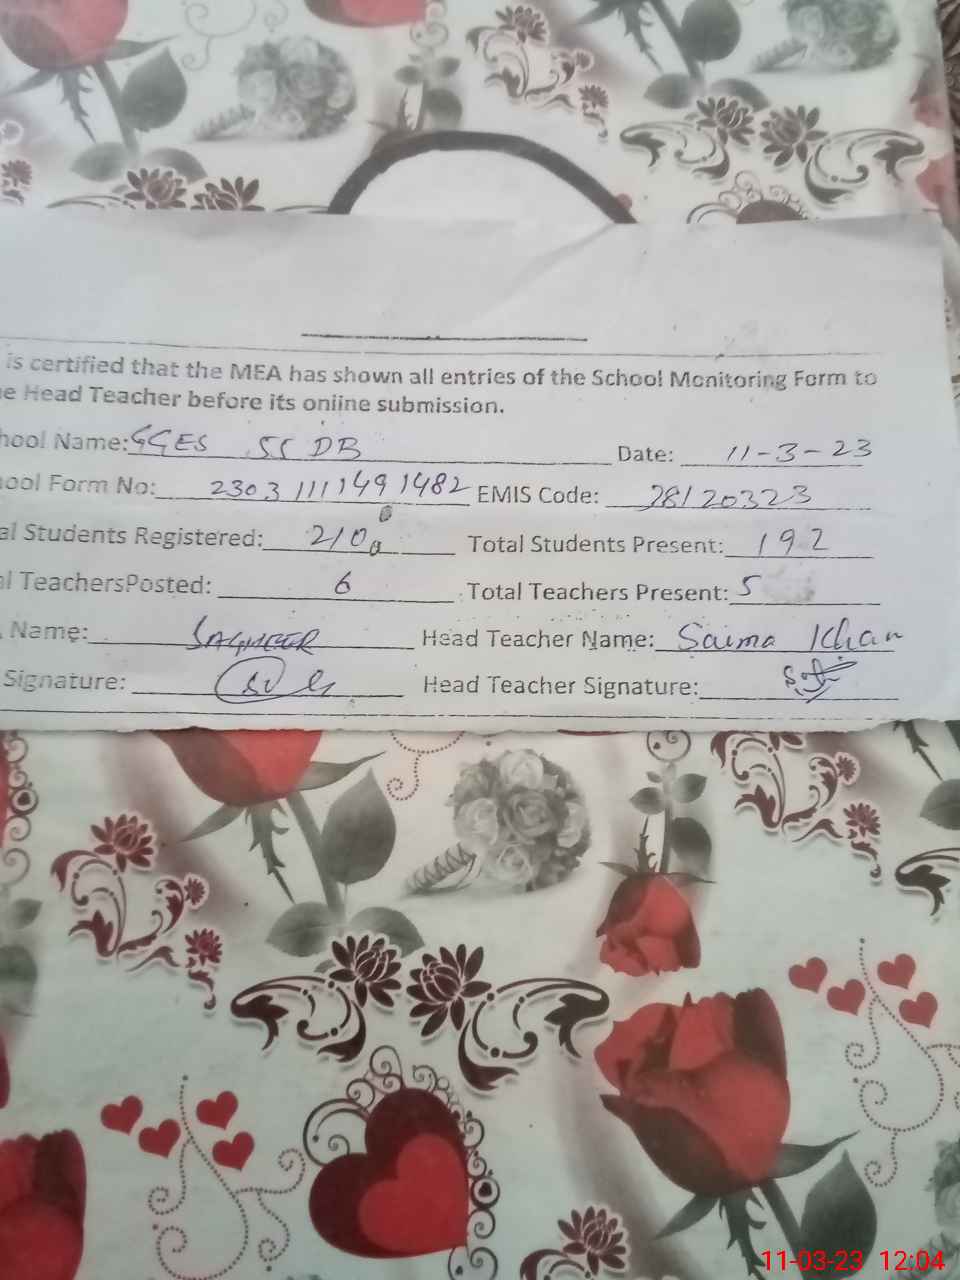 is certified that the MEA has shown all entries of the School Monitoring Form to
e Head Teacher before its online submission.
hool Name: GGES SS DB Date: 11-3-23
ool Form No: 2303111149 1482 EMIS Code: 28120323
al Students Registered: 210 Total Students Present: 192
al TeachersPosted: 6 Total Teachers Present: 5
Name: SAGHEER Head Teacher Name: Saima Khan
Signature: Head Teacher Signature:
11-03-23 12:04